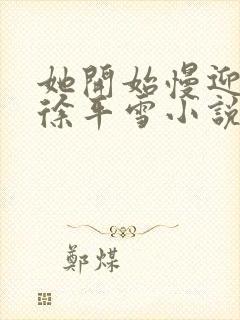 她開始慢迎
徐平雪小說
鄭煤